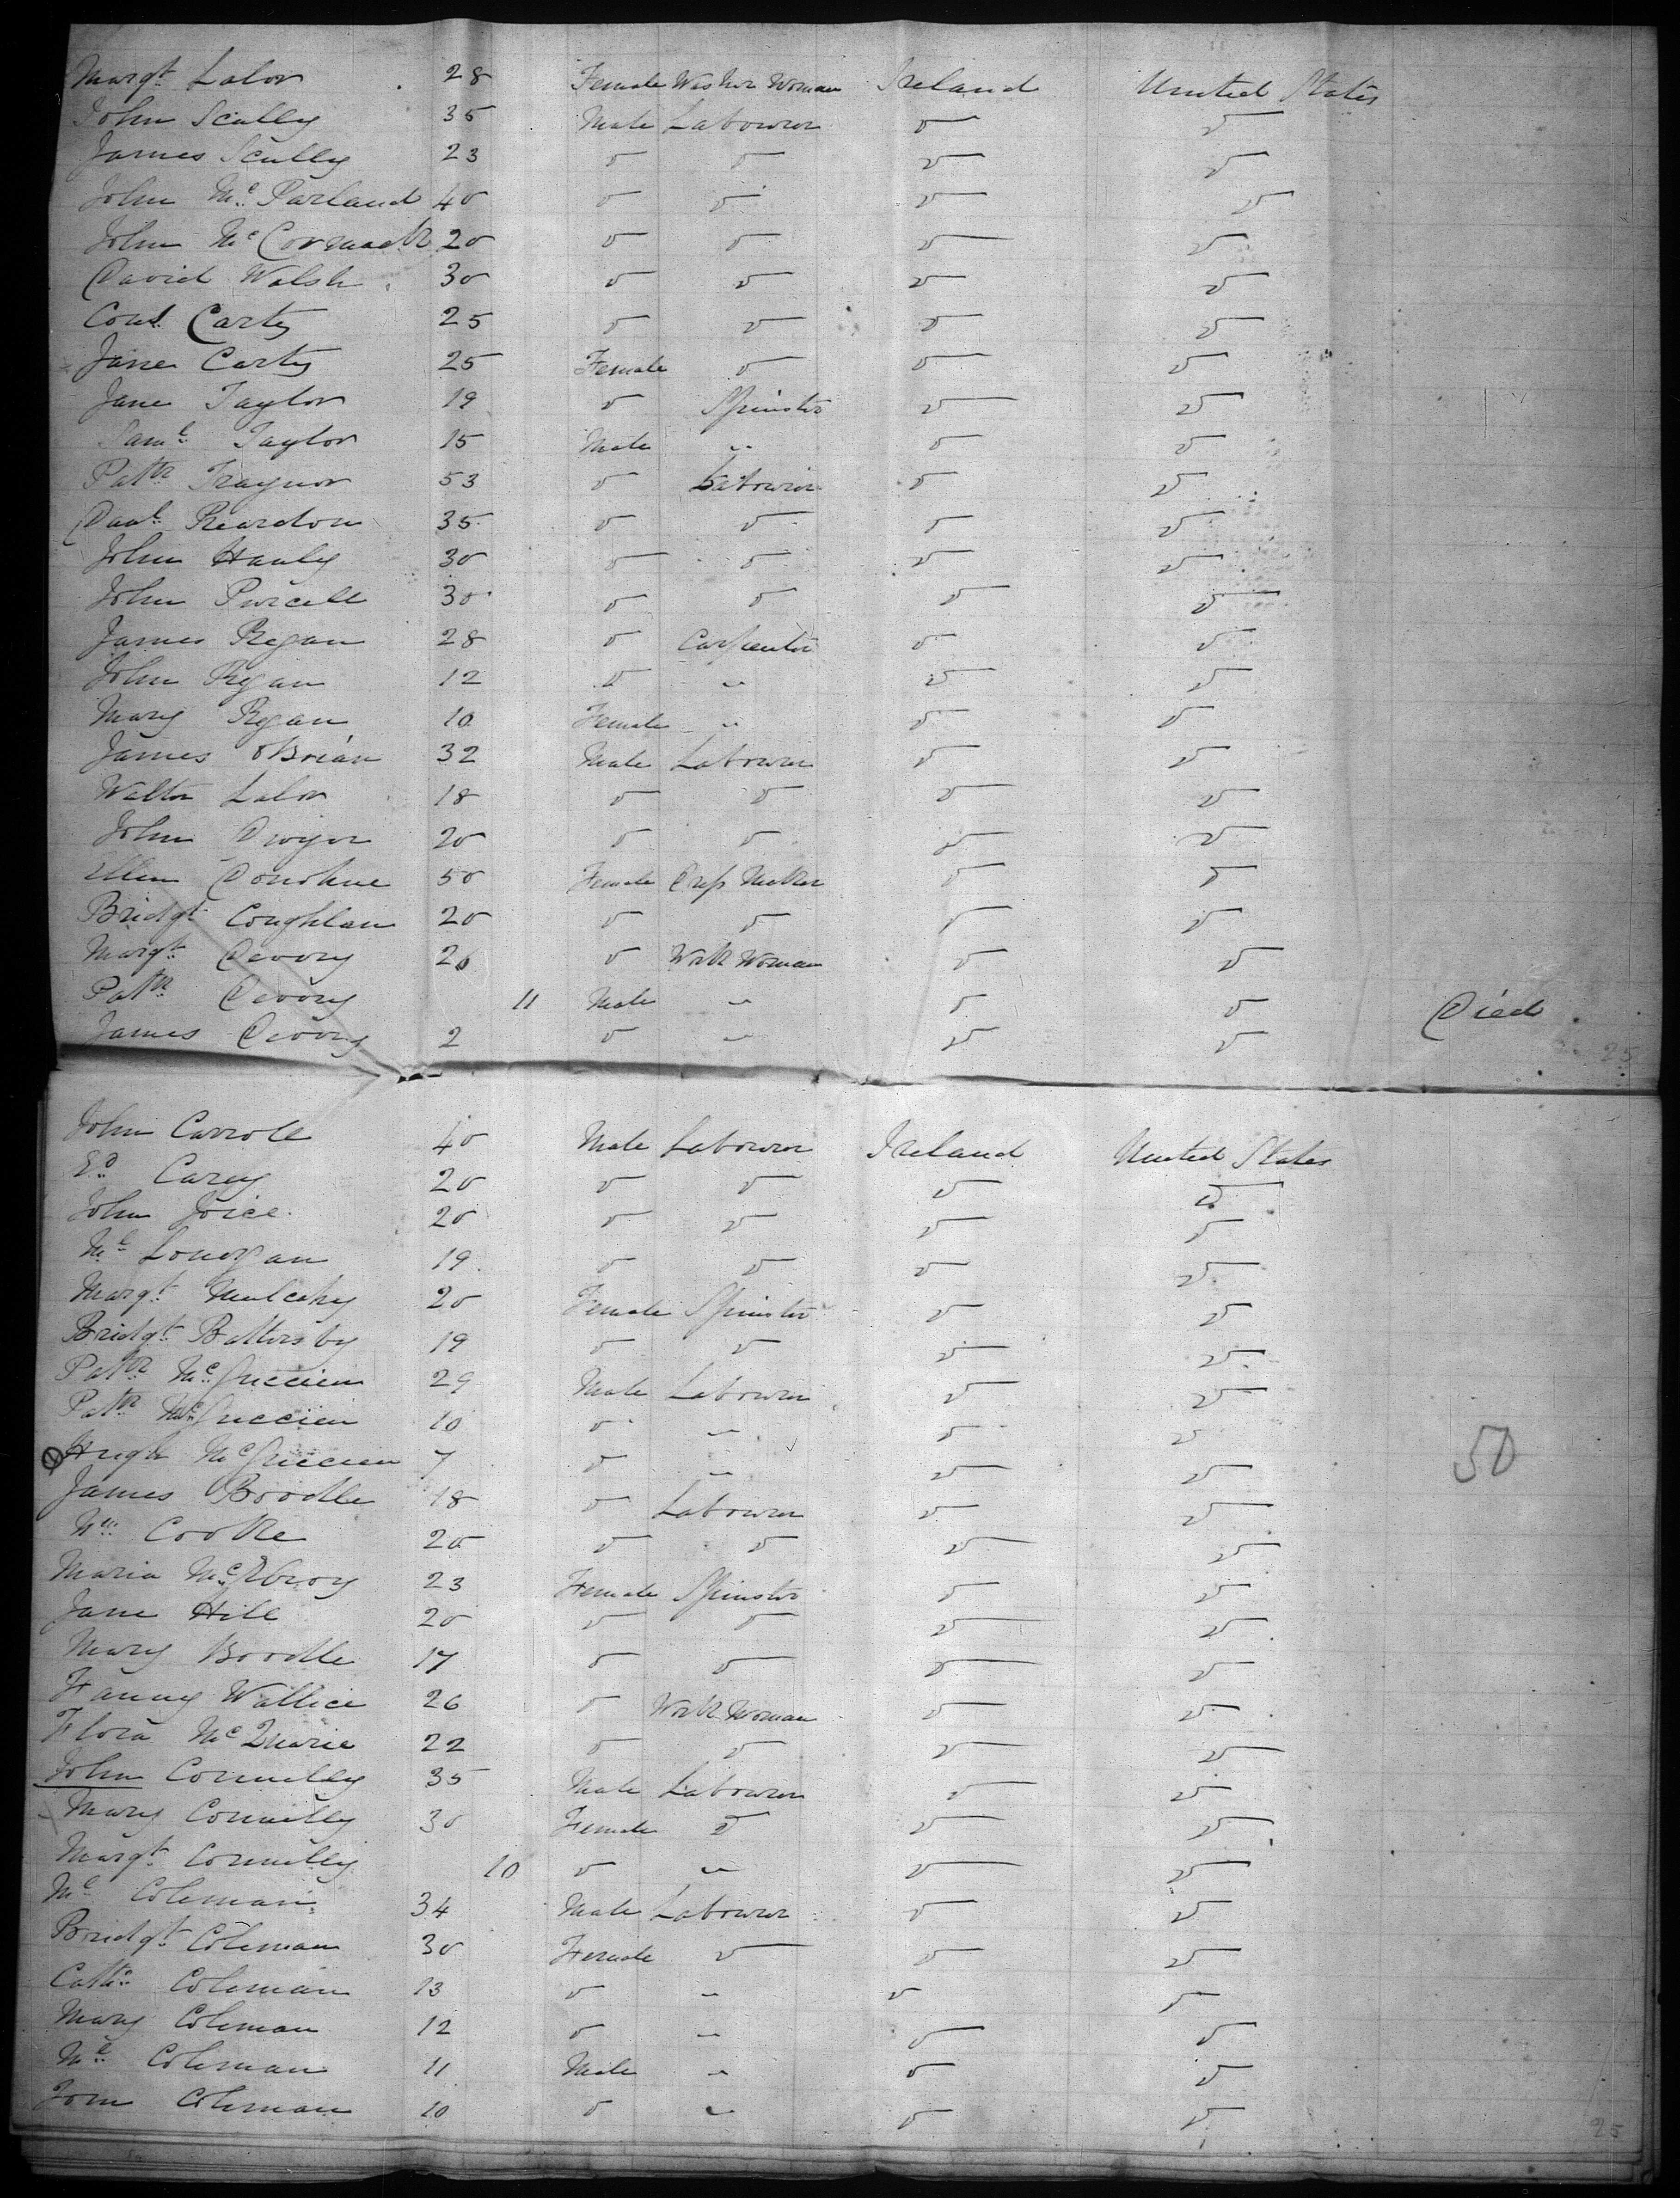 Margt Lalor 28 Female Washer Woman Ireland United States
John Scully 35 Male Labourer do do
James Scully 23 do do do do
John Mc Parland 40 do do do do
John Mc Cormack 20 do do do do
David Walsh 30 do do do do
Corn. Carty 25 do do do do
Jane Carty 25 Female do do do
Jane Taylor 19 do Spinster do do
Saml Taylor 15 Male " do do
Patk Traynor 53 do Labourer do do
Danl Reardon 35 do do do do
John Hanly 30 do do do do
John Purcell 30 do do do do
James Regan 28 do Carpenter do do
John Rgan 12 do " do do
Mary Regan 10 Female " do do
James OBrian 32 Male Labourer do do
Walter Lalor 18 do do do do
John Dwyer 20 do do do do
Ellen Donohue 50 Female Dress Maker do do
Bridgt Coughlan 20 do do do do
Margt Devory 20 do Work Woman do do
Patk Devory 11 Male " do do Died
James Devory 2 do " do do
25
John Carroll 40 Male Labourer Ireland United States
Ed Carey 20 do do do do
John Joice 20 do do do do
Ml Lonergan 19 do do do do
Margt Mulcahy 20 Female Spinster do do
Bridgt Battersby 19 do do do do
Patk Mc 29 Male Labourer do do
Patk Mc 10 do " do do
Hugh Mc 7 do " do do
50
James Boodle 18 do Labourer do do
Wm Cooke 20 do do do do
Maria McElroy 23 Female Spinster do do
Jane Hill 20 do do do do
Mary Boodle 17 do do do do
Fanny Wallice 26 do Work Woman do do
Flora Mc Quarie 22 do do do do
John Connelly 35 Male Labourer do do
Mary Connelly 30 Female do do do
Margt Connelly 10 do " do do
Ml Coleman 34 Male Labourer do do
Bridgt Coleman 30 Female do do do
Cathe Coleman 13 do " do do
Mary Coleman 12 do " do do
Ml Coleman 11 Male " do do
Tom Coleman 10 do " do do
25